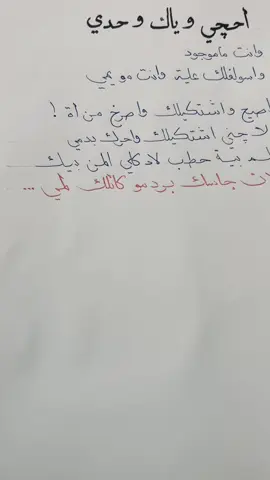 احچي وياك وحدي
وانت ماموجود
واسولفلك علية وانت مو يمي
اصيح واشتكيلك واصرخ من اة !
لا چني اشتكيلك واحرك بدمي
بية حطب لا دكلي المن بيك
جاسك برد مو كاتلك لمي ...